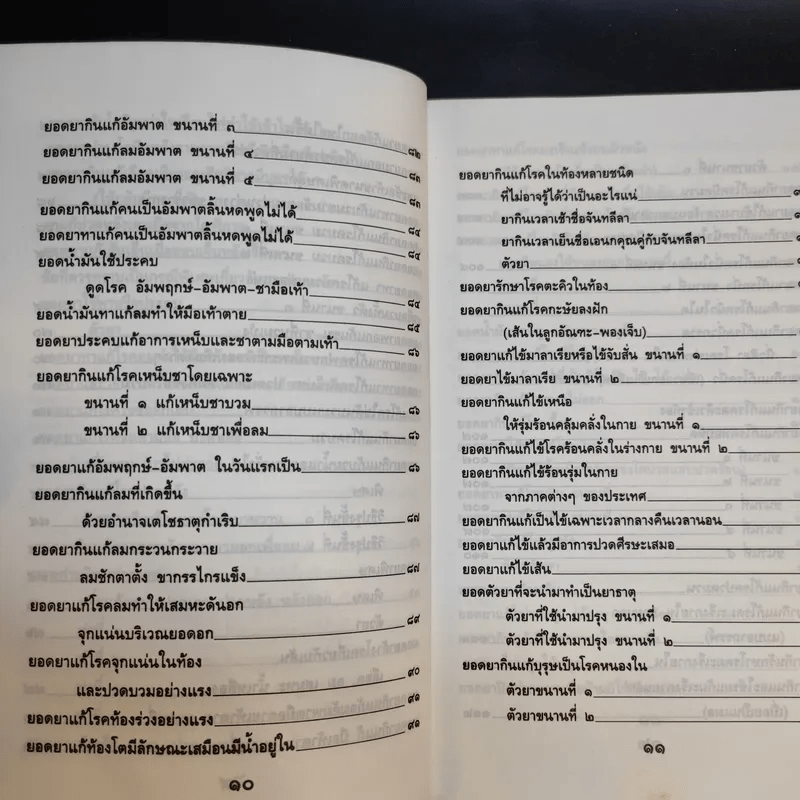 ยอดยากินแก้อัมพาต ขนานที่ ๓ ๘๒
ยอดยากินแก้ลมอัมพาต ขนานที่ ๔ ๘๓
ยอดยากินแก้ลมอัมพาต ขนานที่ ๕ ๘๓
ยอดยากินแก้คนเป็นอัมพาตลิ้นหดพูดไม่ได้ ๘๔
ยอดยาทาแก้คนเป็นอัมพาตลิ้นหดพูดไม่ได้ ๘๔
ยอดน้ำมันใช้ประคบ
ดูดโรค อัมพฤกษ์-อัมพาต-ชามือเท้า ๘๔
ยอดน้ำมันทาแก้ลมทำให้มือเท้าตาย ๘๕
ยอดยาประคบแก้อาการเหน็บและชาตามมือตามเท้า ๘๖
ยอดยากินแก้โรคเหน็บชาโดยเฉพาะ
ขนานที่ ๑ แก้เหน็บชาบวม ๘๖
ขนานที่ ๒ แก้เหน็บชาเพื่อลม ๘๖
ยอดยาแก้อัมพฤกษ์-อัมพาต ในวันแรกเป็น ๘๖
ยอดยากินแก้ลมที่เกิดขึ้น
ด้วยอำนาจเตโชธาตุกำเริบ ๘๗
ยอดยากินแก้ลมกระวนกระวาย
ลมชักตาตั้ง ขากรรไกรแข็ง ๘๗
ยอดยาแก้โรคลมทำให้เสมหะดันอก
จุกแน่นบริเวณยอดอก ๘๙
ยอดยาแก้โรคจุกแน่นในท้อง
และปวดบวมอย่างแรง ๙๐
ยอดยาแก้โรคท้องร่วงอย่างแรง ๙๑
ยอดยาแก้ท้องโตมีลักษณะเสมือนมีน้ำอยู่ใน ๙๑
๑๐
ยอดยากินแก้โรคในท้องหลายชนิด
ที่ไม่อาจรู้ได้ว่าเป็นอะไรแน่
ยากินเวลาเช้าชื่อจันทลีลา
ยากินเวลาเย็นชื่อเอนกคุณคู่กับจันทลีลา
ตัวยา
ยอดยารักษาโรคตะคิวในท้อง
ยอดยากินแก้โรคกะษัยลงฝัก
(เส้นในลูกอัณฑะ-พองเจ็บ)
ยอดยาแก้ไข้มาลาเรียหรือไข้จับสั่น ขนานที่ ๑
ยอดยาไข้มาลาเรีย ขนานที่ ๒
ยอดยากินแก้ไข้เหนือ
ให้รุ่มร้อนคลุ้มคลั่งในกาย ขนานที่ ๑
ยอดยากินแก้ไข้โรคร้อนคลั่งในร่างกาย ขนานที่ ๒
ยอดยากินแก้ไข้ร้อนรุ่มในกาย
จากภาคต่างๆ ของประเทศ
ยอดยากินแก้เป็นไข้เฉพาะเวลากลางคืนเวลานอน
ยอดยาแก้ไข้แล้วมีอาการปวดศีรษะเสมอ
ยอดยาแก้ไข้เส้น
ยอดตัวยาที่จะนำมาทำเป็นยาธาตุ
ตัวยาที่ใช้นำมาปรุง ขนานที่ ๑
ตัวยาที่ใช้นำมาปรุง ขนานที่ ๒
ยอดยากินแก้บุรุษเป็นโรคหนองใน
ตัวยาขนานที่ ๑
ตัวยาขนานที่ ๒
๑๑